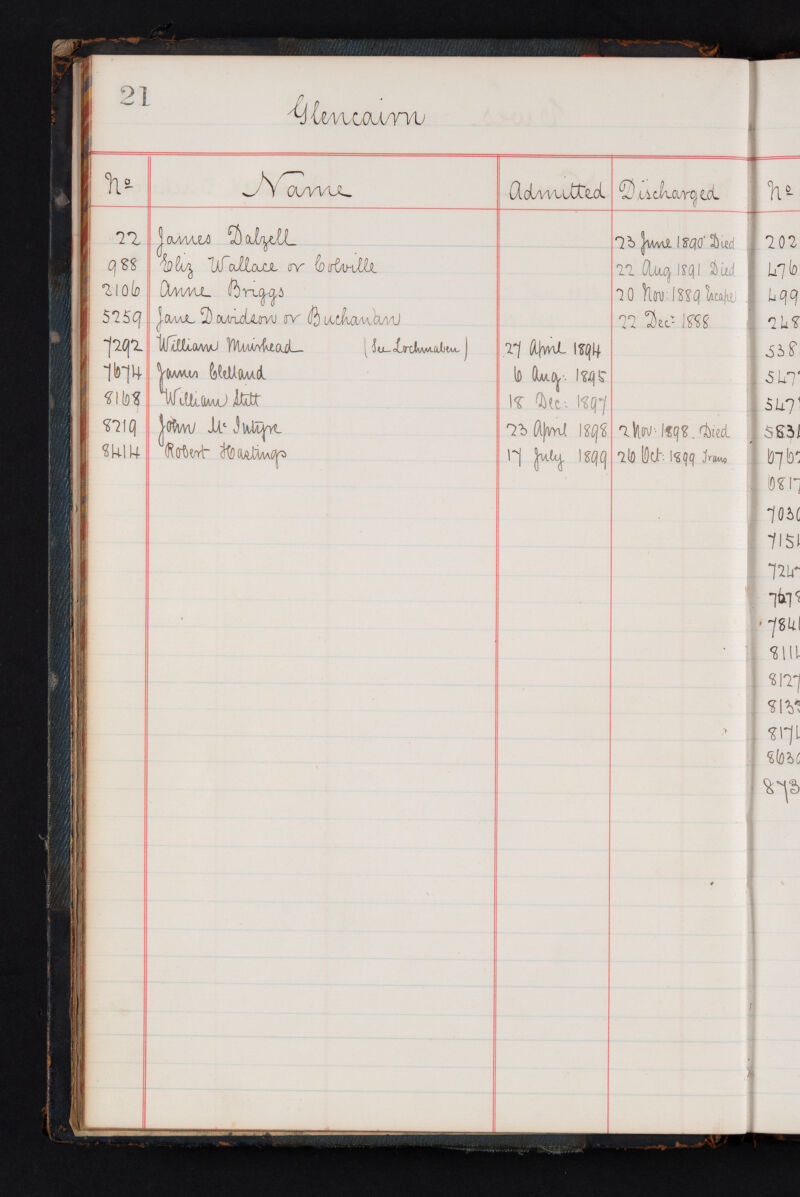 21
Glencairn
No Name Admitted Discharged No
22 James Dalzell 23 June 1890 Died 202
988 Eliz Wallace or Colville 22 Aug 1891 Died 476
2106 Anne Briggs 20 Nov: 1889 499
5259 Jane Davidson or Buchanan 22 Decr 1888 248
7292 William Muirhead (See Lochmaben) 27 April 1894 538
7674 James Clelland 6 Aug: 1895 547
8168 William Stitt 18 Dec: 1897 547
8219 John Mc Intyre 23 April 1898 2 Nov: 1898. Died 583
8414 Robert Hastings 17 July 1899 26 Oct: 1899 Trans 676
681
703
715
724
767
784
811
812
813
817
863
873